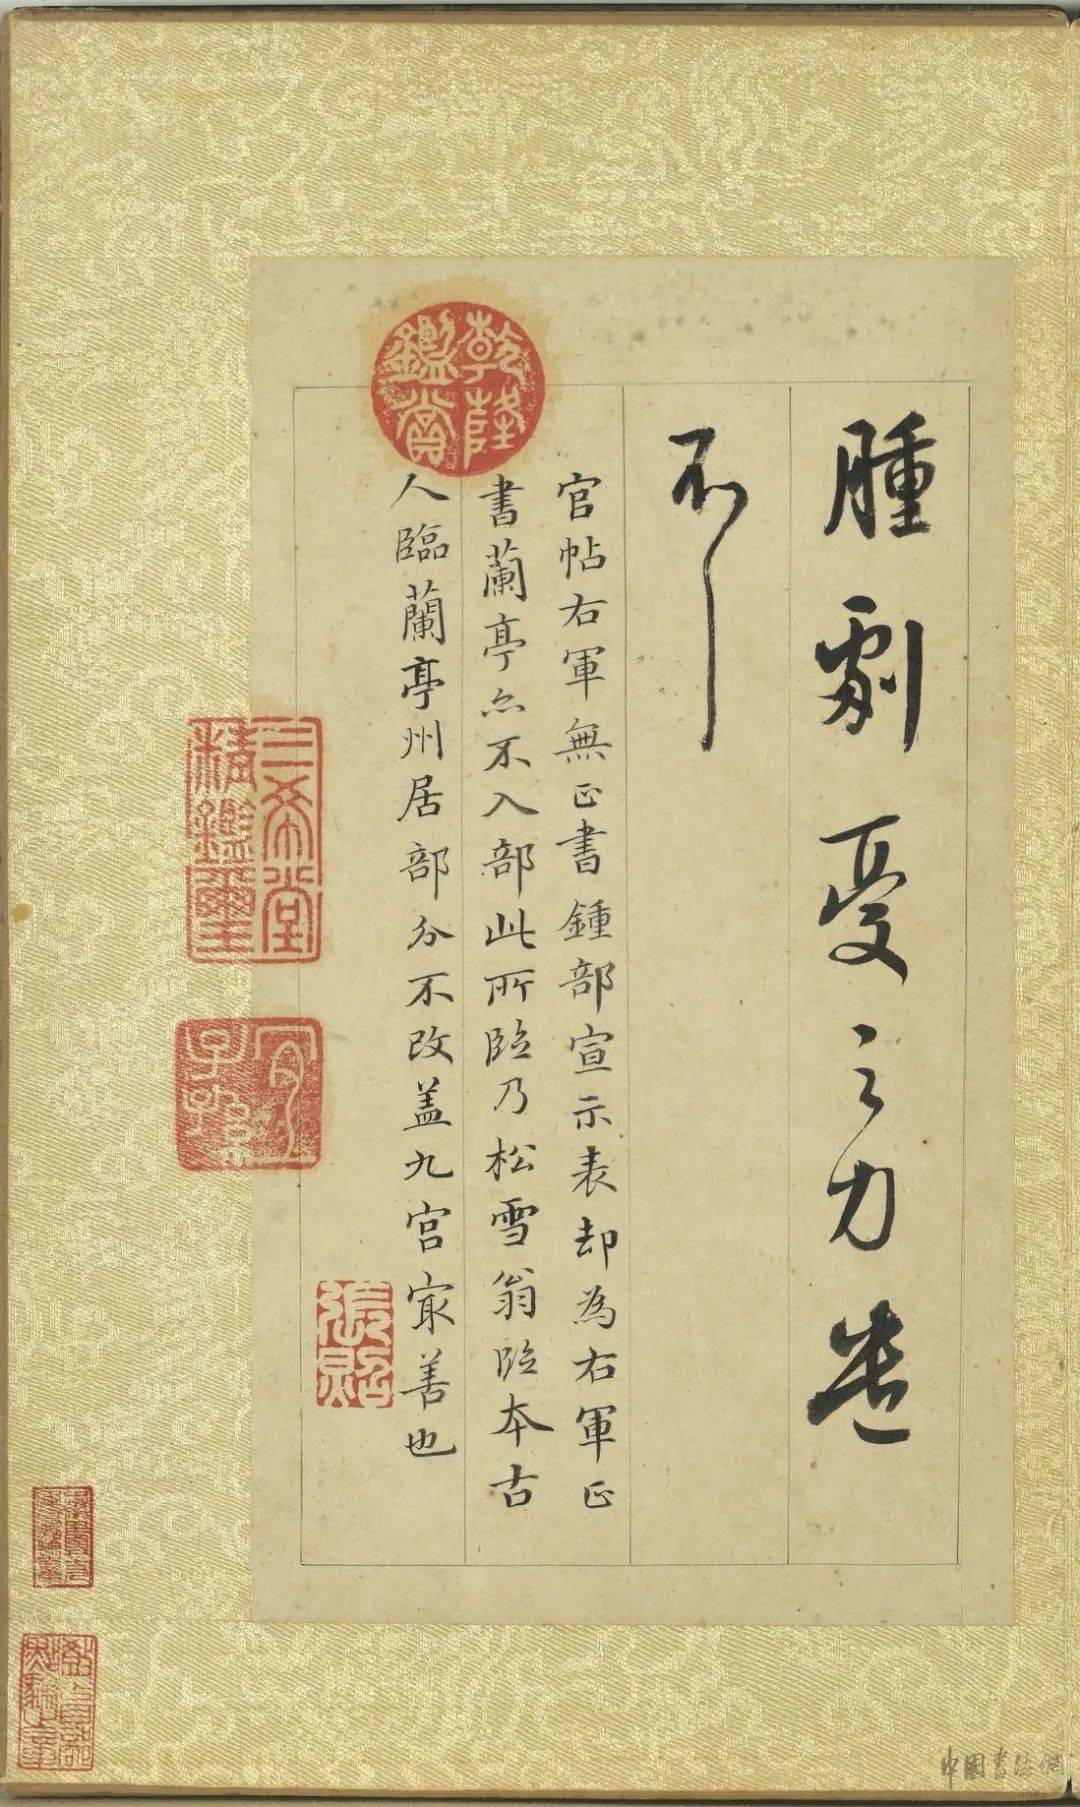 腫劇憂之力遣
不一一
官帖右軍無正書鍾部宣示表却為右軍正
書蘭亭亦不入部此所臨乃松雪翁臨本古
人臨蘭亭州居部分不改盖九宮㝡善也
乾隆鑑賞
三希堂精鑑璽
宜子孫
張照
中国書法網